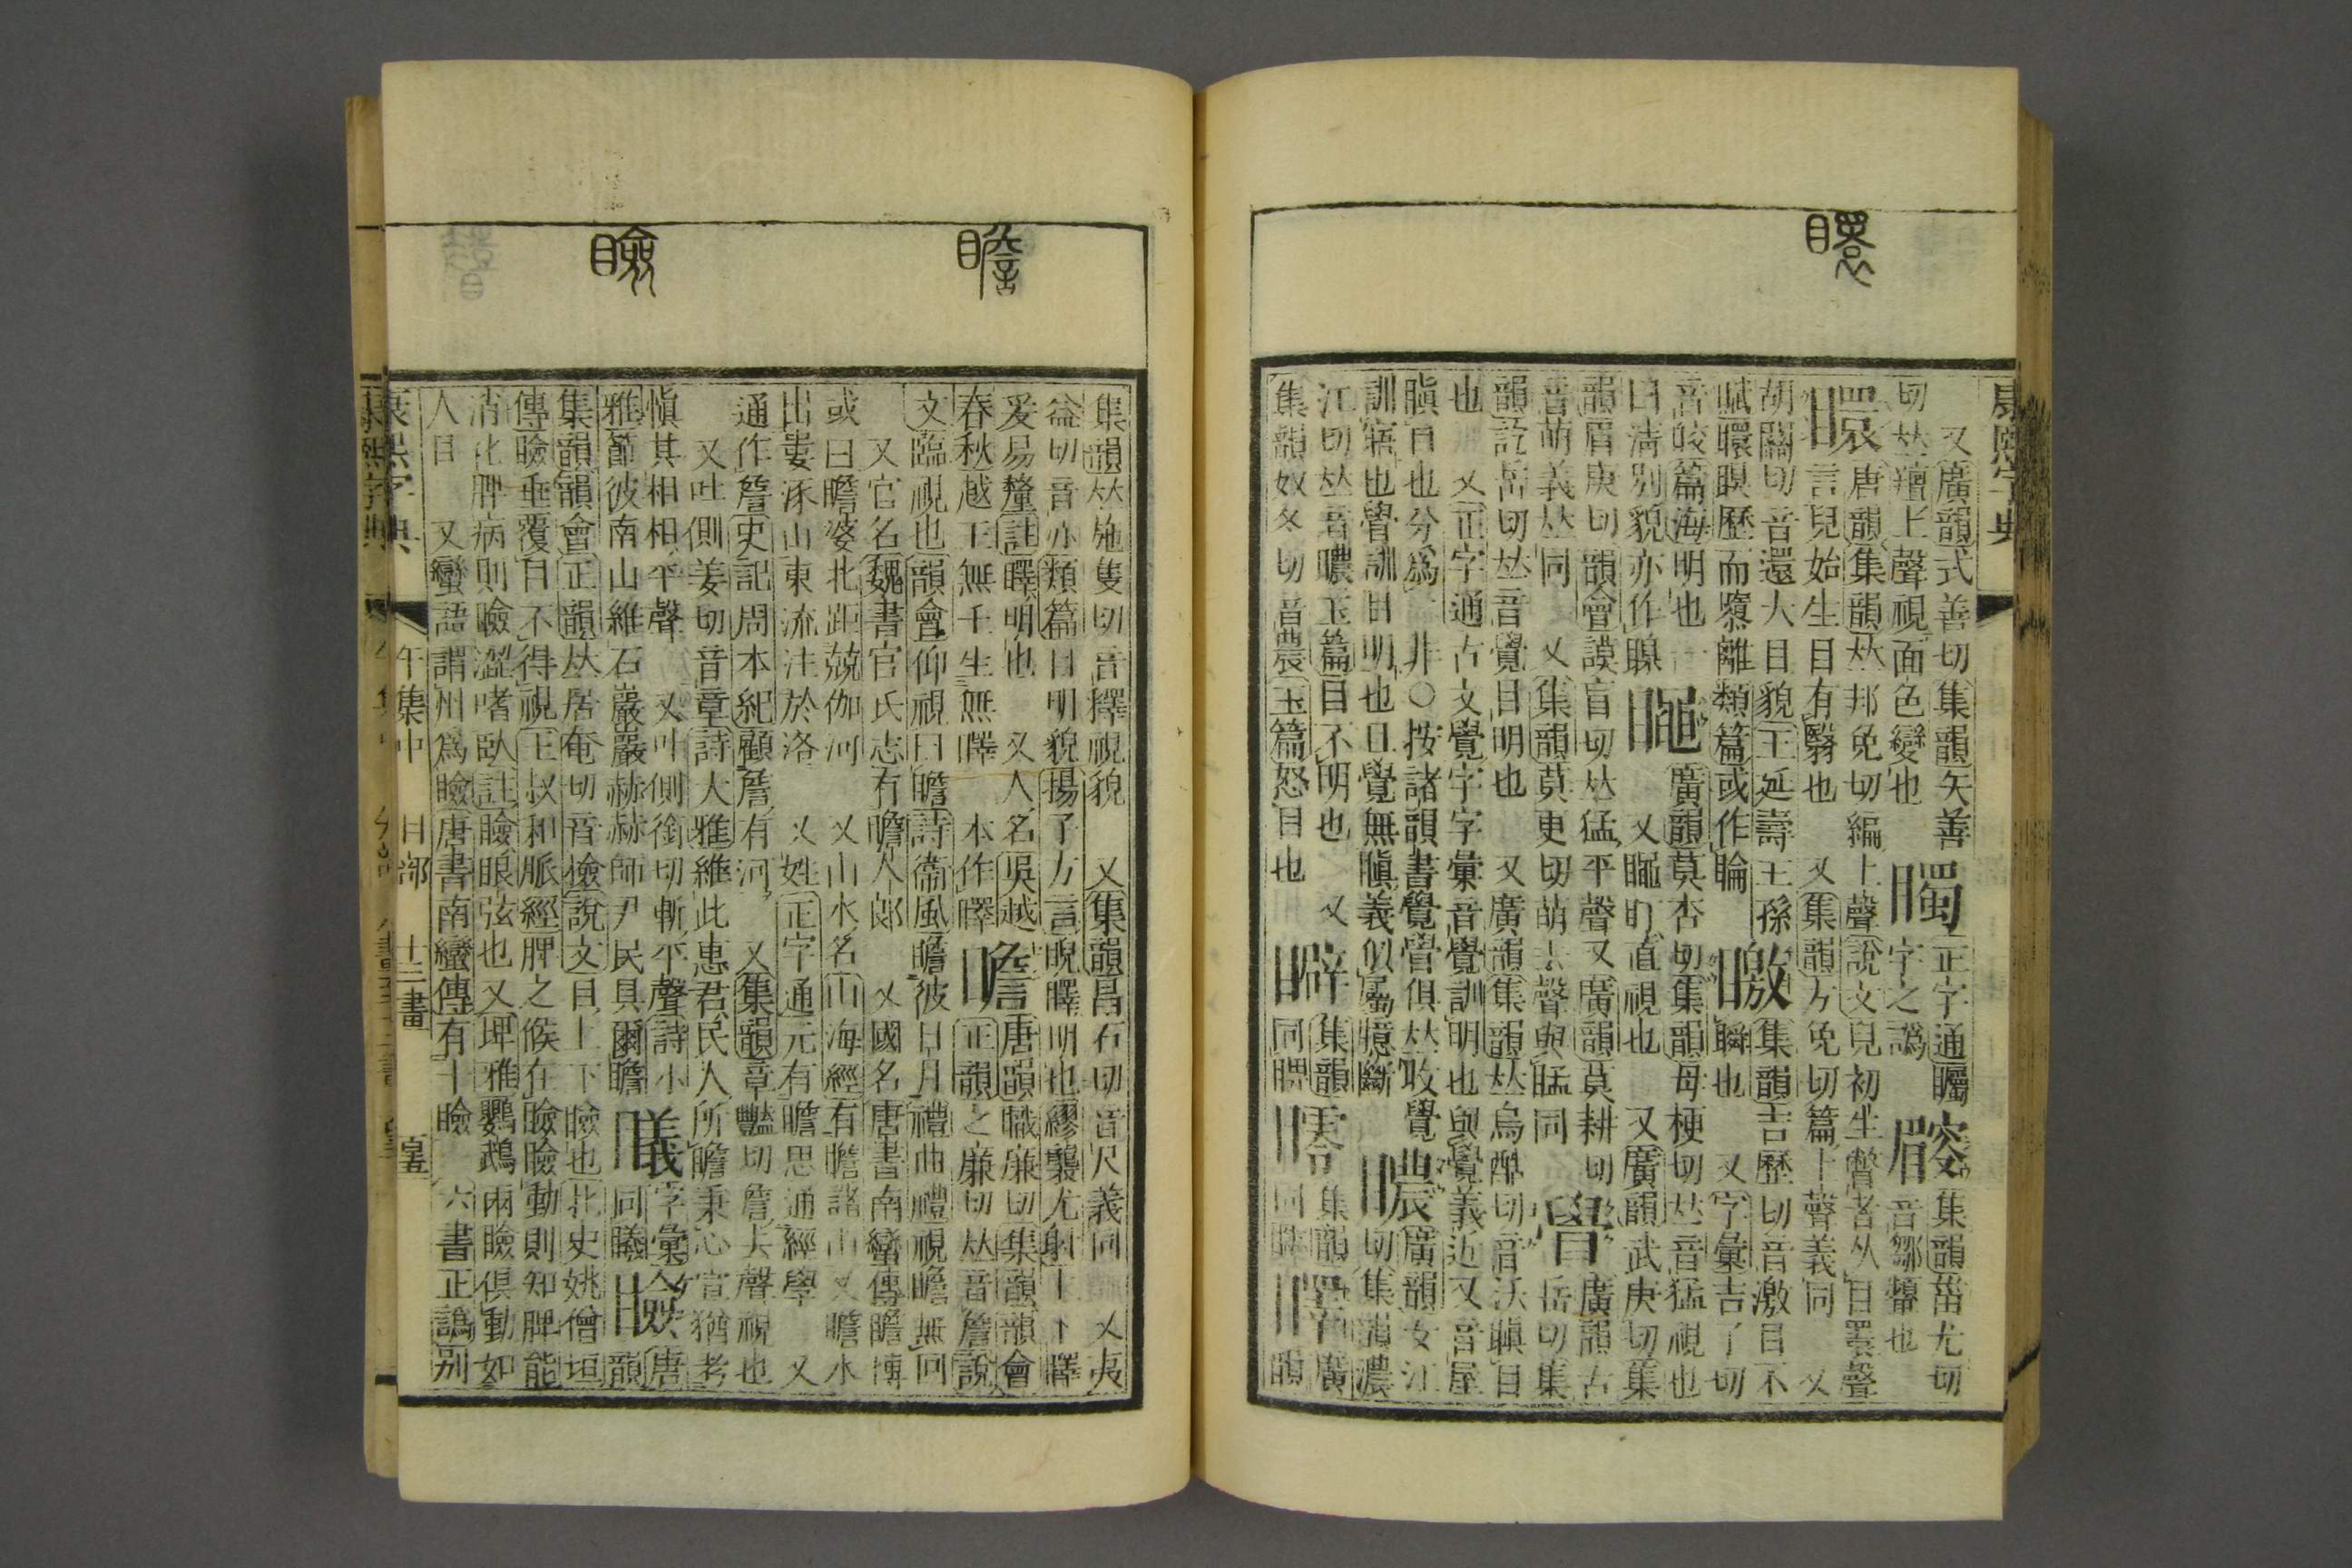 康熙字典
又廣韻式善切集韻矢善 正字通矚 集韻菑尤切
切𠀤羶上聲視面色變也 字之譌 音鄒矉也
䁵 唐韻集韻𠀤邦免切編上聲說文兒初生瞥者从目瞏聲
言兒始生目有翳也 又集韻方免切篇上聲義同 又
胡關切音還大目貌王延壽王孫 集韻吉歷切音激目不
賦䁵瞑歷而隳離類篇或作 瞬也 又字彙吉了切
音皎篇海明也 廣韻莫杏切集韻母梗切𠀤音猛視也
曰清別貌亦作 又 盯直視也 又廣韻武庚切集
韻眉庚切韻會謨盲切𠀤猛平聲又廣韻莫耕切 廣韻古
音萌義𠀤同 又集韻莫更切萌去聲與 同 岳切集
韻訖岳切𠀤音覺目明也 又廣韻集韻𠀤烏酷切音沃瞋目
也 又正字通古文覺字字彙音覺訓明也與覺義近又音屋
瞋目也分爲 非○按諸韻書覺 俱𠀤收覺 廣韻女江
訓寤也 訓目明也目覺無瞋義似屬臆斷 切集韻濃
江切𠀤音 玉篇目不明也 又 集韻 集韻 廣
集韻奴冬切音農玉篇怒目也 同睥 同 韻
瞻 瞼
集韻𠀤施隻切音釋視貌 又集韻昌石切音尺義同 又夷
益切音亦類篇目明貌揚子方言睨曎明也繆襲尤射上下曎
爰易釐註曎明也 又人名吳越 瞻 唐韻職廉切集韻韻會
春秋越王無壬生無曎 本作曎 正韻之廉切𠀤音詹說
文臨視也韻會仰視曰瞻詩衞風瞻彼日月禮曲禮視瞻無回
又官名魏書官氏志有瞻人郎 又國名唐書南蠻傳瞻博
或曰瞻婆北距兢伽河 又山水名山海經有瞻諸山又瞻水
出婁涿山東流注於洛 又姓正字通元有瞻思通經學 又
通作詹史記周本紀顧詹有河 又集韻章豔切詹去聲視也
又叶側姜切音章詩大雅維此惠君民人所瞻秉心宣猶考
愼其相相平聲 又叶側銜切斬平聲詩小 字彙 瞼 唐
雅節彼南山維石巖巖赫赫師尹民具爾瞻 同曦 韻
集韻韻會正韻𠀤居奄切音檢說文目上下瞼也北史姚僧垣
傳瞼垂覆目不得視王叔和脈經脾之候在瞼瞼動則知脾能
消化脾病則瞼澀嗜臥註瞼眼弦也又埤雅鸚鵡兩瞼俱動如
人目 又蠻語謂州爲瞼唐書南蠻傳有十瞼 六書正譌別
康熙字典 午集中 目部 十三畫